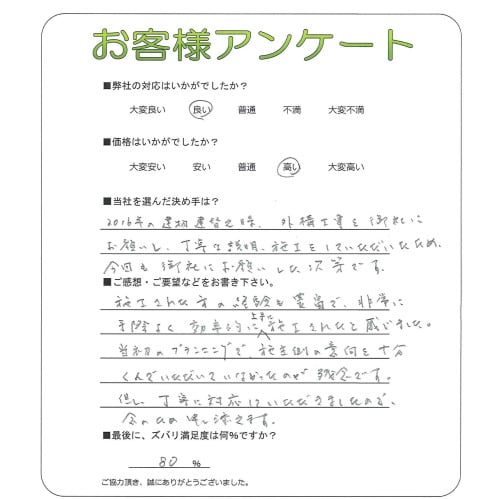 お客様アンケート
■弊社の対応はいかがでしたか？
大変良い 良い 普通 不満 大変不満
■価格はいかがでしたか？
大変安い 安い 普通 高い 大変高い
■当社を選んだ決め手は？
2016年の建物建替之時、外構工事を御社に
お願いし、丁寧な説明、施工をしていただいたため、
今回も御社にお願いした次第です。
■ご感想・ご要望などをお書き下さい。
施工された方の経験も豊富で、非常に
手際よく効率的に上手に施工されたと感じました。
当初のプランニングで、施主側の意向を十分
くんでいただいていなかったのが残念です。
但し、丁寧に対応していただきましたので、
念のため申し添えます。
■最後に、ズバリ満足度は何%ですか？
80 %
ご協力頂き、誠にありがとうございました。